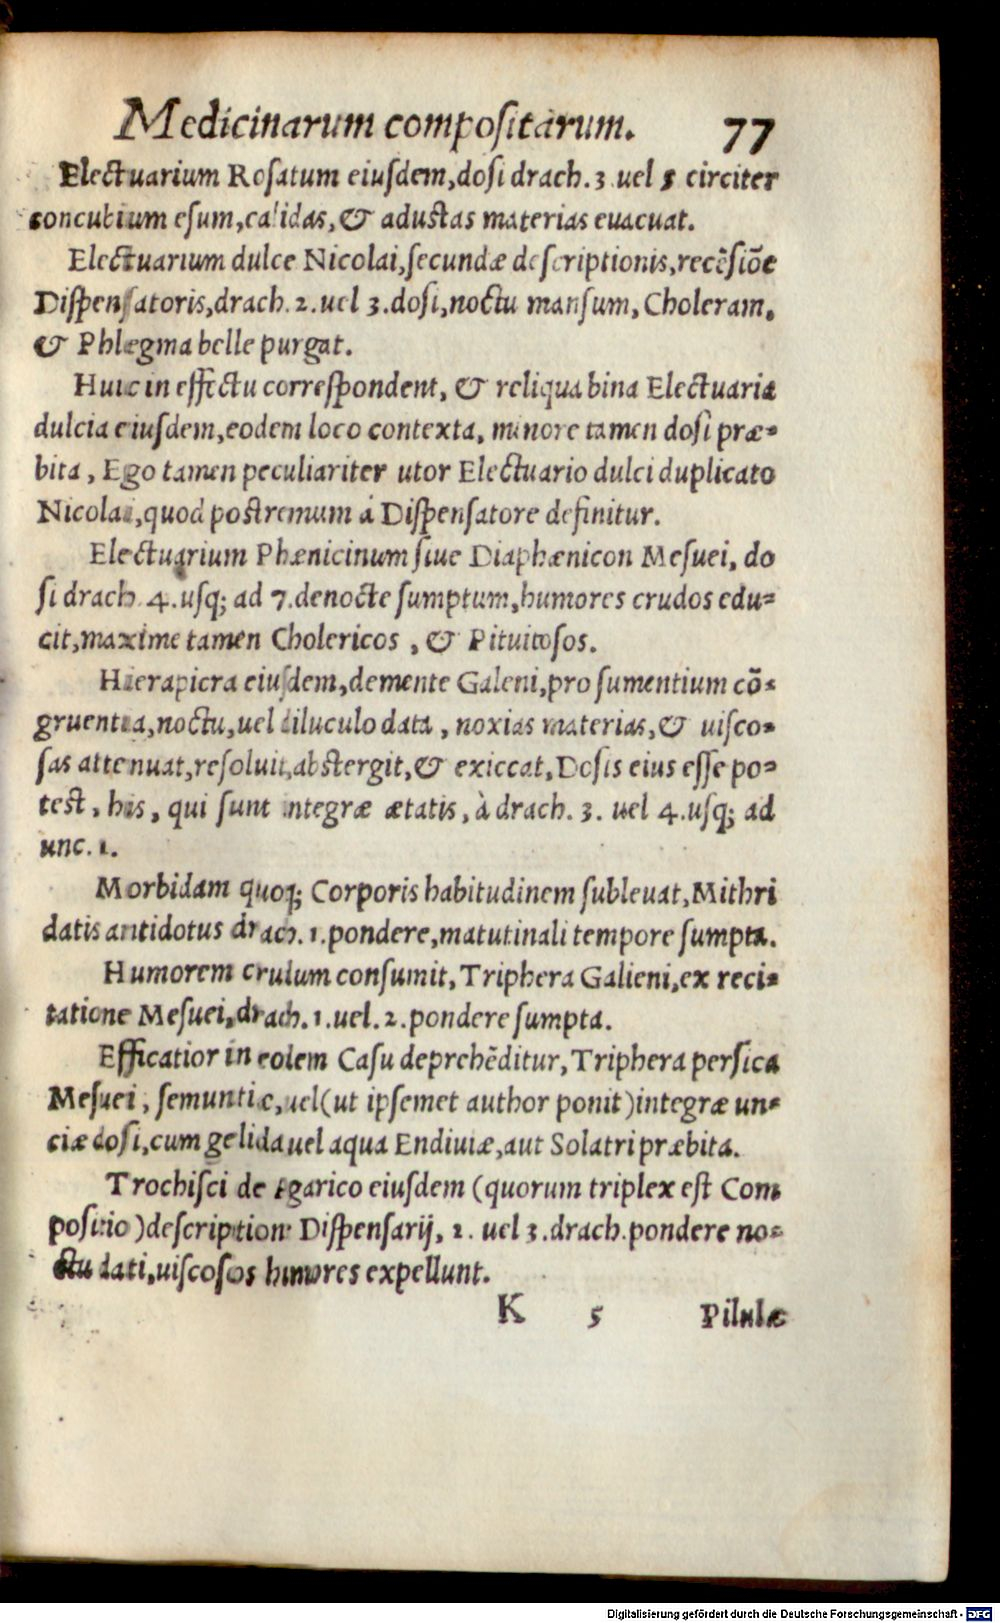 Medicinarum compositarum. 77
Electuarium Rosatum eiusdem, dosi drach. 3 uel 5 circiter
concubium esum, calidas, & adustas materias euacuat.
Electuarium dulce Nicolai, secundæ descriptionis, recẽsiõe
Dispensatoris, drach. 2. uel 3. dosi, noctu mansum, Choleram,
& Phlegma belle purgat.
Huic in effectu correspondent, & reliqua bina Electuaria
dulcia eiusdem, eodem loco contexta, minore tamen dosi præ-
bita, Ego tamen peculiariter utor Electuario dulci duplicato
Nicolai, quod postremum á Dispensatore definitur.
Electuarium Phænicinum siue Diaphænicon Mesuei, do
si drach. 4. usq; ad 7. denocte sumptum, humores crudos edu-
cit, maxime tamen Cholericos, & Pituitosos.
Hierapicra eiusdem, demente Galeni, pro sumentium cõ-
gruentia, noctu, uel diluculo data, noxias materias, & uisco-
sas attenuat, resoluit, abstergit, & exiccat, Dosis eius esse po-
test, his, qui sunt integræ ætatis, à drach. 3. uel 4. usq; ad
unc. 1.
Morbidam quoq; Corporis habitudinem subleuat, Mithri
datis antidotus drach. 1. pondere, matutinali tempore sumpta.
Humorem crudum consumit, Triphera Galieni, ex reci-
tatione Mesuei, drach. 1. uel. 2. pondere sumpta.
Efficatior in eodem Casu deprehẽditur, Triphera persica
Mesuei, semunciæ, uel (ut ipsemet author ponit) integræ un-
ciæ dosi, cum gelida uel aqua Endiuiæ, aut Solatri præbita.
Trochisci de Agarico eiusdem (quorum triplex est Com
positio) descriptione Dispensarij, 2. uel 3. drach. pondere no-
ctu dati, uiscosos humores expellunt.
K 5 Pilulæ
Digitalisierung gefördert durch die Deutsche Forschungsgemeinschaft - DFG